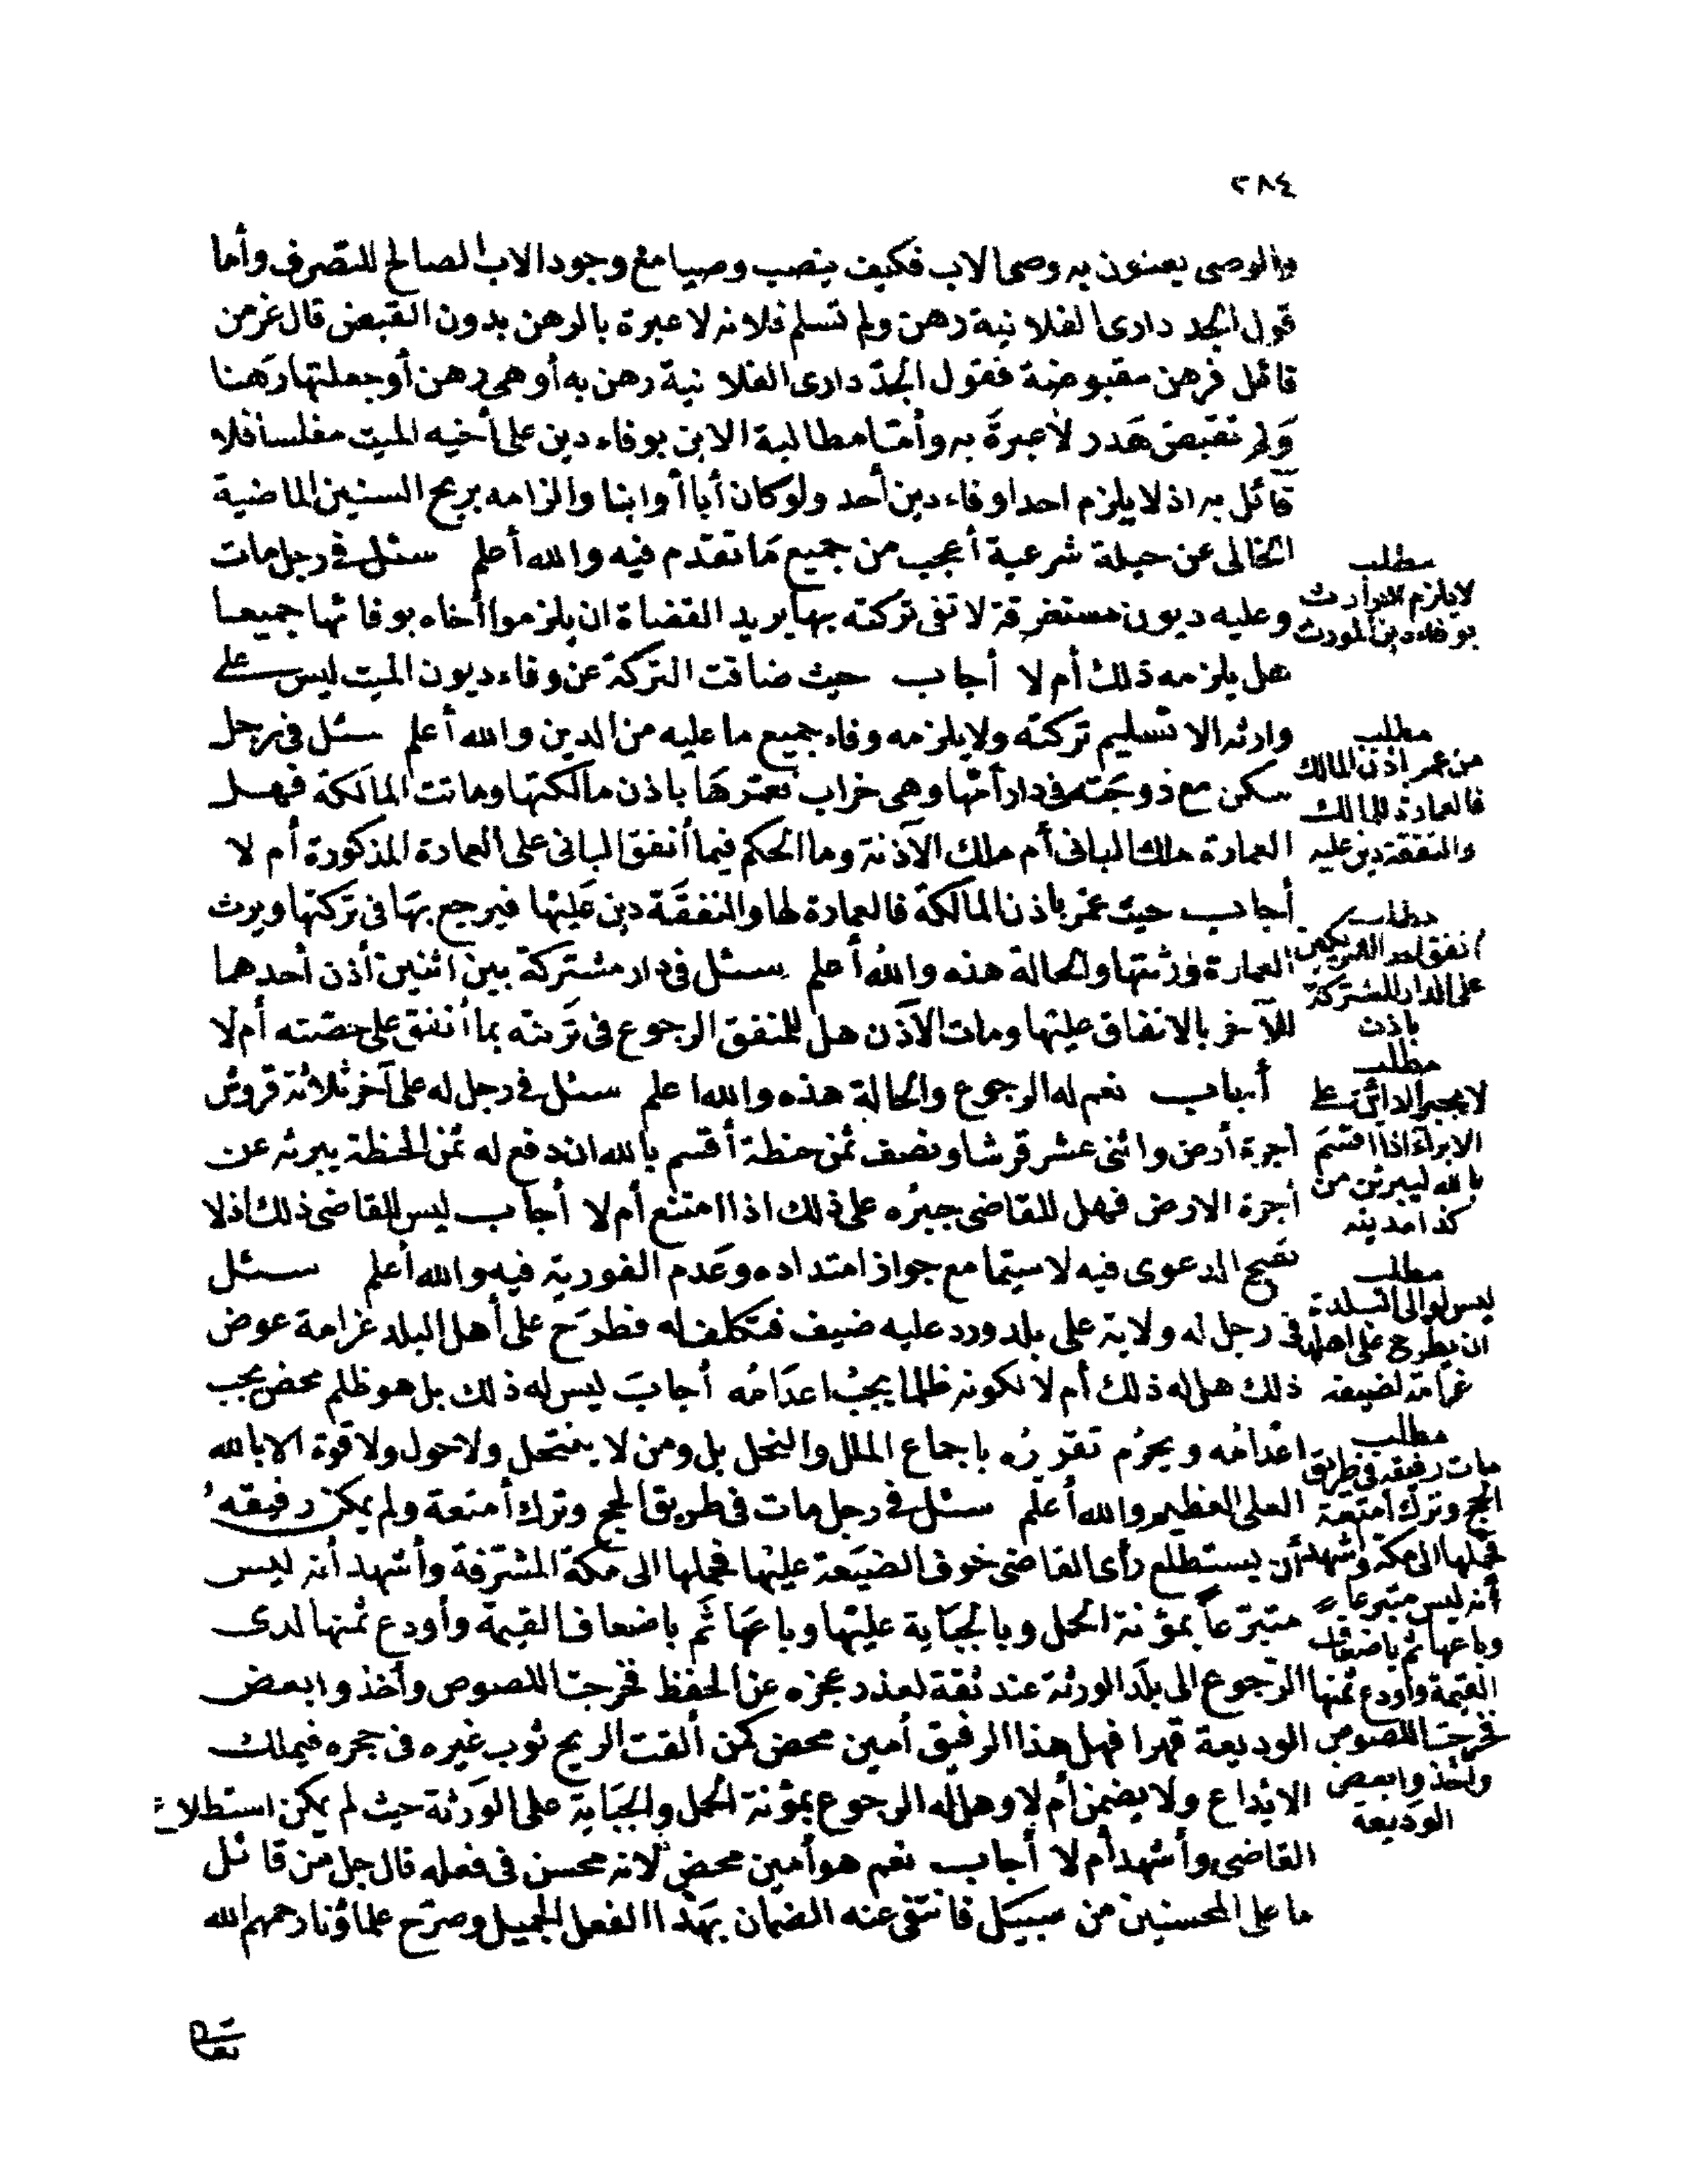 ٢٨٤
والوصى يعنون به وصى الاب فكيف ينصب وصيا مع وجود الاب الصالح للتصرف وأما
قول الجد دارى الفلانية رهن ولم تسلم فلانه لا عبرة بالرهن بدون القبض قال عز من
قائل فرهن مقبوضة فقول الجدّ دارى الفلانية رهن به أو هى رهن أو جعلتها رهنا
ولم تقبض هدر لا عبرة به وأمّا مطالبة الابن بوفاء دين على أخيه الميت مفلسا فلا
قائل به اذ لا يلزم احدا وفاء دين أحد ولو كان أبا أو ابنا والزامه بربح السنين الماضية
الخالى عن حيلة شرعية أعجب من جميع ما تقدم فيه والله أعلم سئل فى رجل مات
وعليه ديون مستغرقة لا تفى تركته بها يريد القضاة ان يلزموا أخاه بوفائها جميعا
هل يلزمه ذلك أم لا أجاب حيث ضاقت التركة عن وفاء ديون الميت ليس على
وارثه الا تسليم تركته ولا يلزمه وفاء جميع ما عليه من الدين والله أعلم سئل فى رجل
سكن مع زوجته فى دار أمّها وهى خراب فعمّرها باذن مالكتها وماتت المالكة فهل
العمارة ملك البانى أم ملك الآذنة وما الحكم فيما أنفق البانى على العمارة المذكورة أم لا
أجاب حيث عمّر باذن المالكة فالعمارة لها والنفقة دين عليها فيرجع بها فى تركتها ويرث
العمارة ورثتها والحالة هذه والله أعلم سئل فى دار مشتركة بين اثنين أذن أحدهما
للآخر بالانفاق عليها ومات الآذن هل للمنفق الرجوع فى تركته بما أنفق على حصّته أم لا
أجاب نعم له الرجوع والحالة هذه والله اعلم سئل فى رجل له على آخر ثلاثة قروش
أجرة أرض واثنى عشر قرشا ونصف ثمن حنطة أقسم بالله ان دفع له ثمن الحنطة يبرئه عن
أجرة الارض فهل للقاضى جبره على ذلك اذا امتنع أم لا أجاب ليس للقاضى ذلك اذ لا
تصح الدعوى فيه لا سيّما مع جواز امتداده وعدم الفورية فيه والله أعلم سئل
فى رجل له ولاية على بلد ورد عليه ضيف فتكلف له فطرح على أهل البلد غرامة عوض
ذلك هل له ذلك أم لا لكونه ظلما يجب اعدامه أجاب ليس له ذلك بل هو ظلم محض يجب
اعدامه ويحرم تقرره باجماع الملل والنحل بل ومن لا ينتحل ولا حول ولا قوة الا بالله
العلى العظيم والله أعلم سئل فى رجل مات فى طريق الحج وترك أمتعة ولم يمكن رفيقه
أن يستطلع رأى القاضى خوف الضيعة عليها فحملها الى مكة المشرّفة وأشهد أنه ليس
متبرّعاً بمؤنة الحمل وبالجباية عليها وباعها ثَم باضعاف القيمة وأودع ثمنها لدى
الرجوع الى بلد الورثة عند ثقة لعذر عجزه عن الحفظ فخرجت اللصوص وأخذوا بعض
الوديعة قهرا فهل هذا الرفيق أمين محض كمن ألقت الريح ثوب غيره فى حجره فيملك
الايداع ولا يضمن أم لا وهل له الرجوع بمؤنة الحمل والجباية على الورثة حيث لم يمكن استطلاع
القاضى وأشهد أم لا أجاب نعم هو أمين محض لانه محسن فى فعله قال جل من قائل
ما على المحسنين من سبيل فانتفى عنه الضمان بهذا الفعل الجميل وصرّح علماؤنا رحمهم الله
مطلب
لا يلزم الوارث
بوفاء دين المورث
مطلب
من عمر باذن المالك
فالعمارة للمالك
والنفقة دين عليه
مطلب
انفق احد الشريكين
على الدار المشتركة
باذن
مطلب
لا يجبر الدائن على
الابراء اذا اقسم
بالله ليبرئن من
كذا مدينه
مطلب
ليس لوالى البلدة
ان يطرح على اهلها
غرامة لضيفه
مطلب
مات رفيقه فى طريق
الحج وترك امتعة
فحملها الى مكة واشهد
أنه ليس متبرعا
وباعها ثم باضعاف
القيمة واودع ثمنها
فخرجت اللصوص
واخذوا بعض
الوديعة